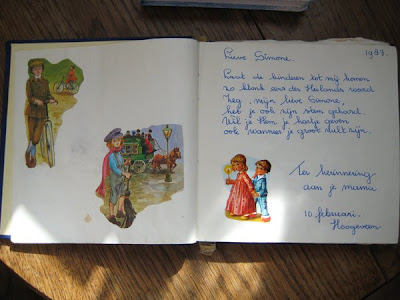 Lieve Simone.
1987.
Laat de kinderen tot mij komen
zo klonk eens der Heilands woord
Zeg, mijn lieve Simone,
heb je ook zijn stem gehoord.
Wil je Hem je hartje geven
ook wanneer je groot zult zijn.
Ter herinnering
aan je mama
10 februari.
Hoogeveen